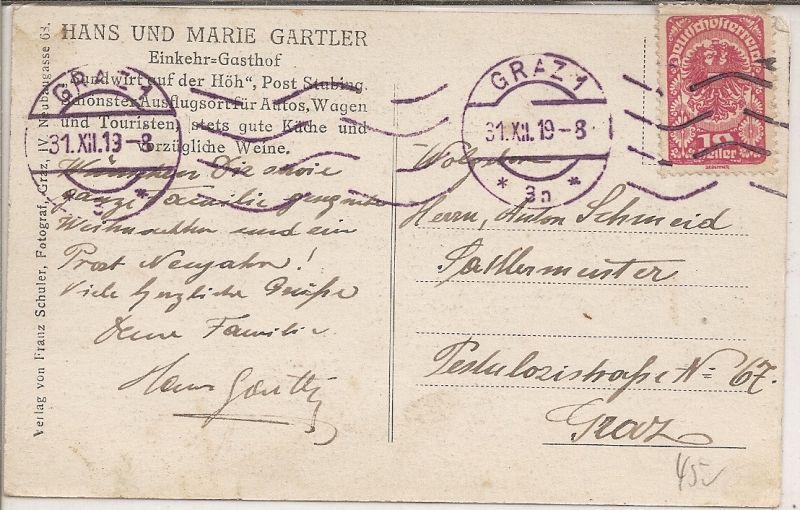 HANS UND MARIE GARTLER
Einkehr-Gasthof
„Hundwirt auf der Höh“, Post Stubing.
Schönster Ausflugsort für Autos, Wagen
und Touristen, stets gute Küche und
vorzügliche Weine.
Wünschen Dir sowie
ganze Familie gesegnete
Weihnachten und ein
Prost Neujahr!
Viele herzliche Grüße
Deine Familie
Hans Gartler
Verlag von Franz Schuler, Fotograf, Graz, IV, Neubaugasse 68.
GRAZ 1
31.XII.19-8
GRAZ 1
31.XII.19-8
* 3b *
Deutschösterreich
10
Heller
Herrn, Anton Schmeid
Sattlermeister
Pestalozistraße № 67.
Graz
45